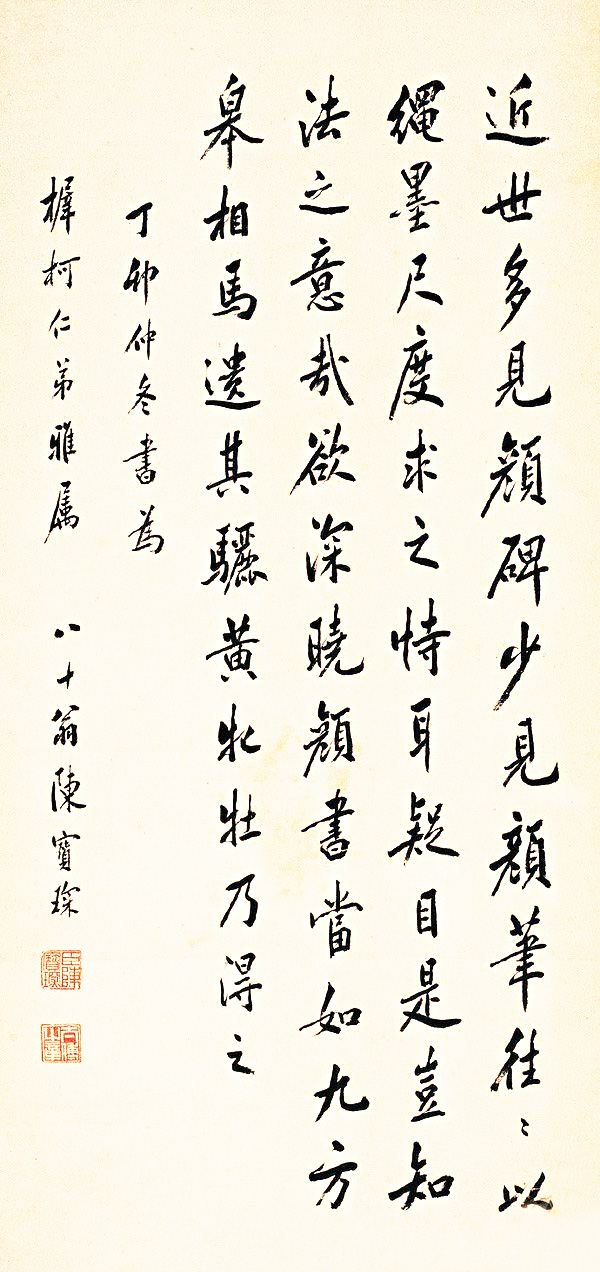 近世多見顏碑少見顏筆往〻以
繩墨尺度求之恃耳疑目是豈知
法之意哉欲深曉顏書當如九方
皋相馬遺其驪黃牝牡乃得之
丁卯仲冬書為
樨柯仁弟雅属
八十翁陳寶琛
臣陳寶琛